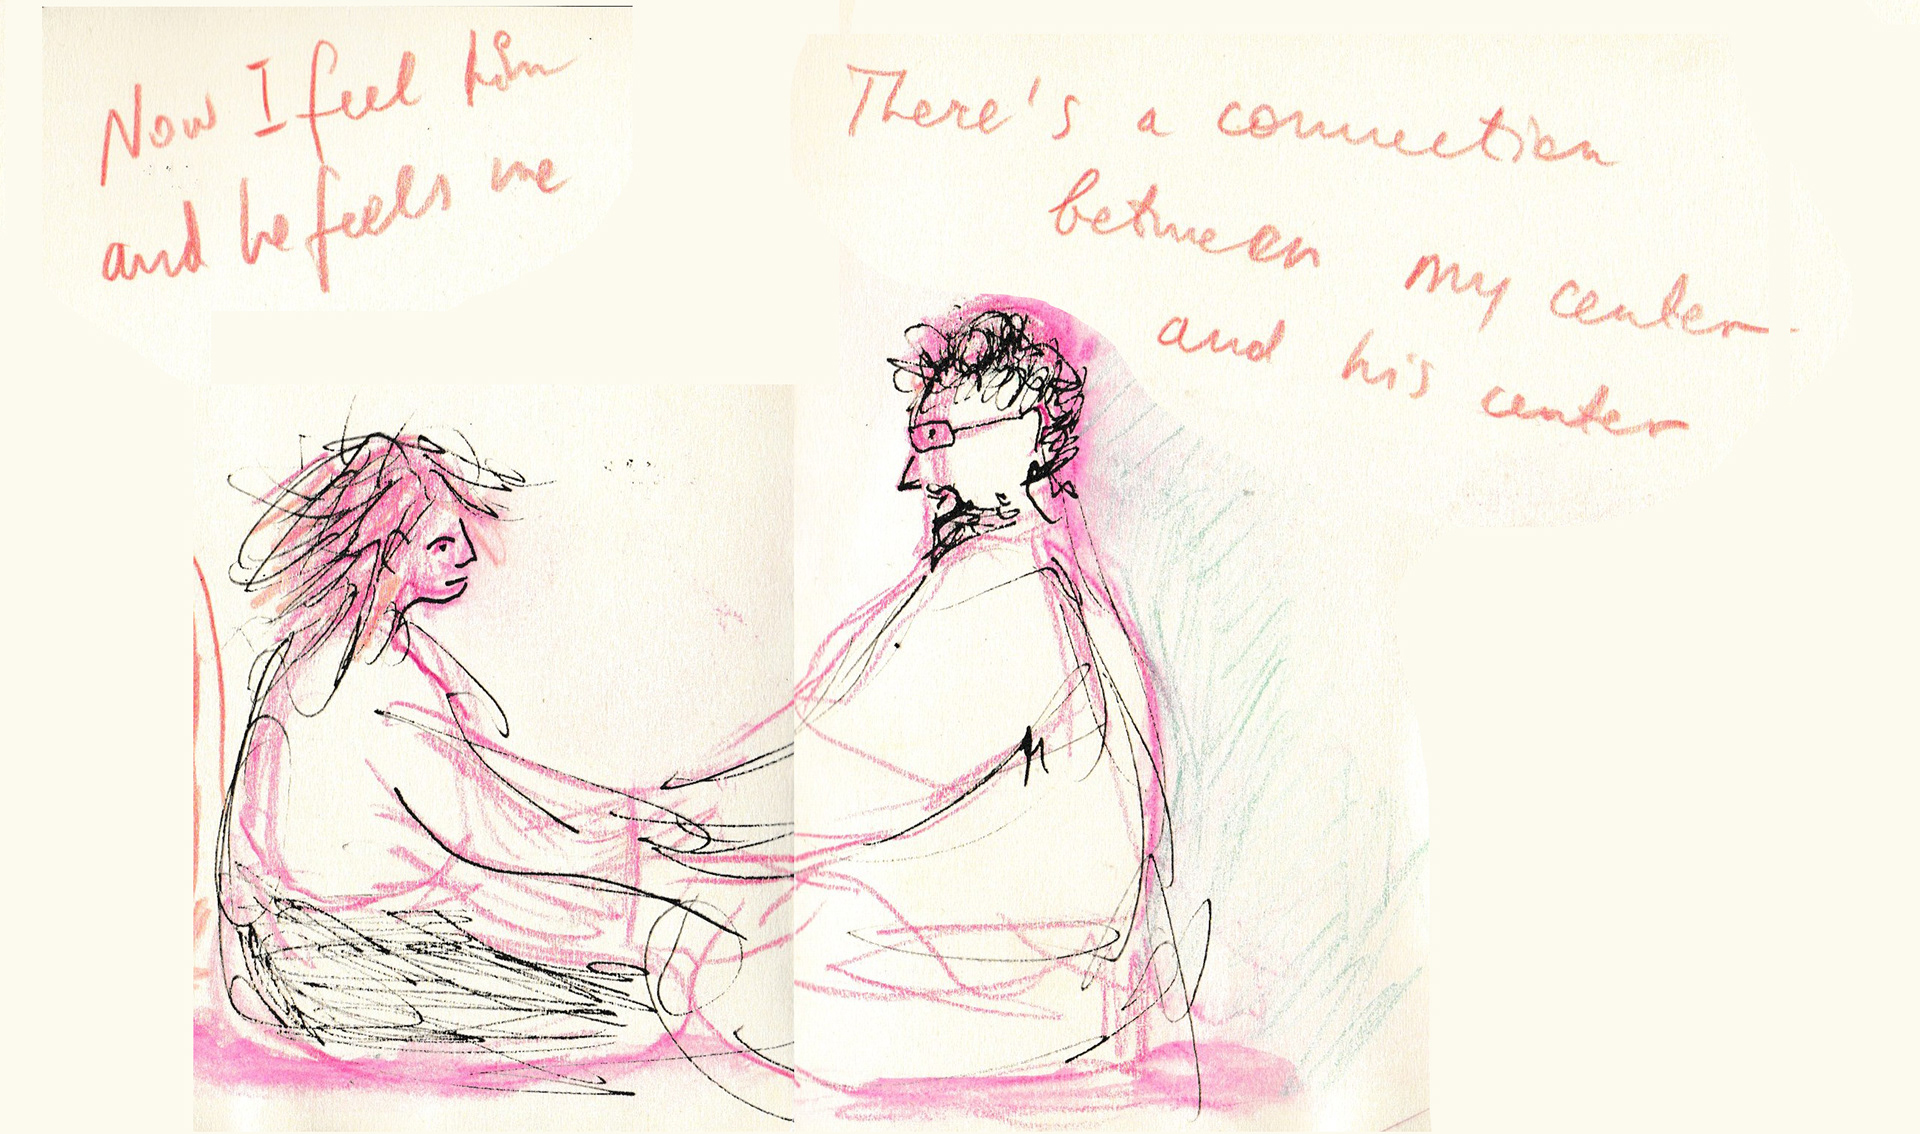 Now I feel him
and he feels me
There's a connection
between my center
and his center